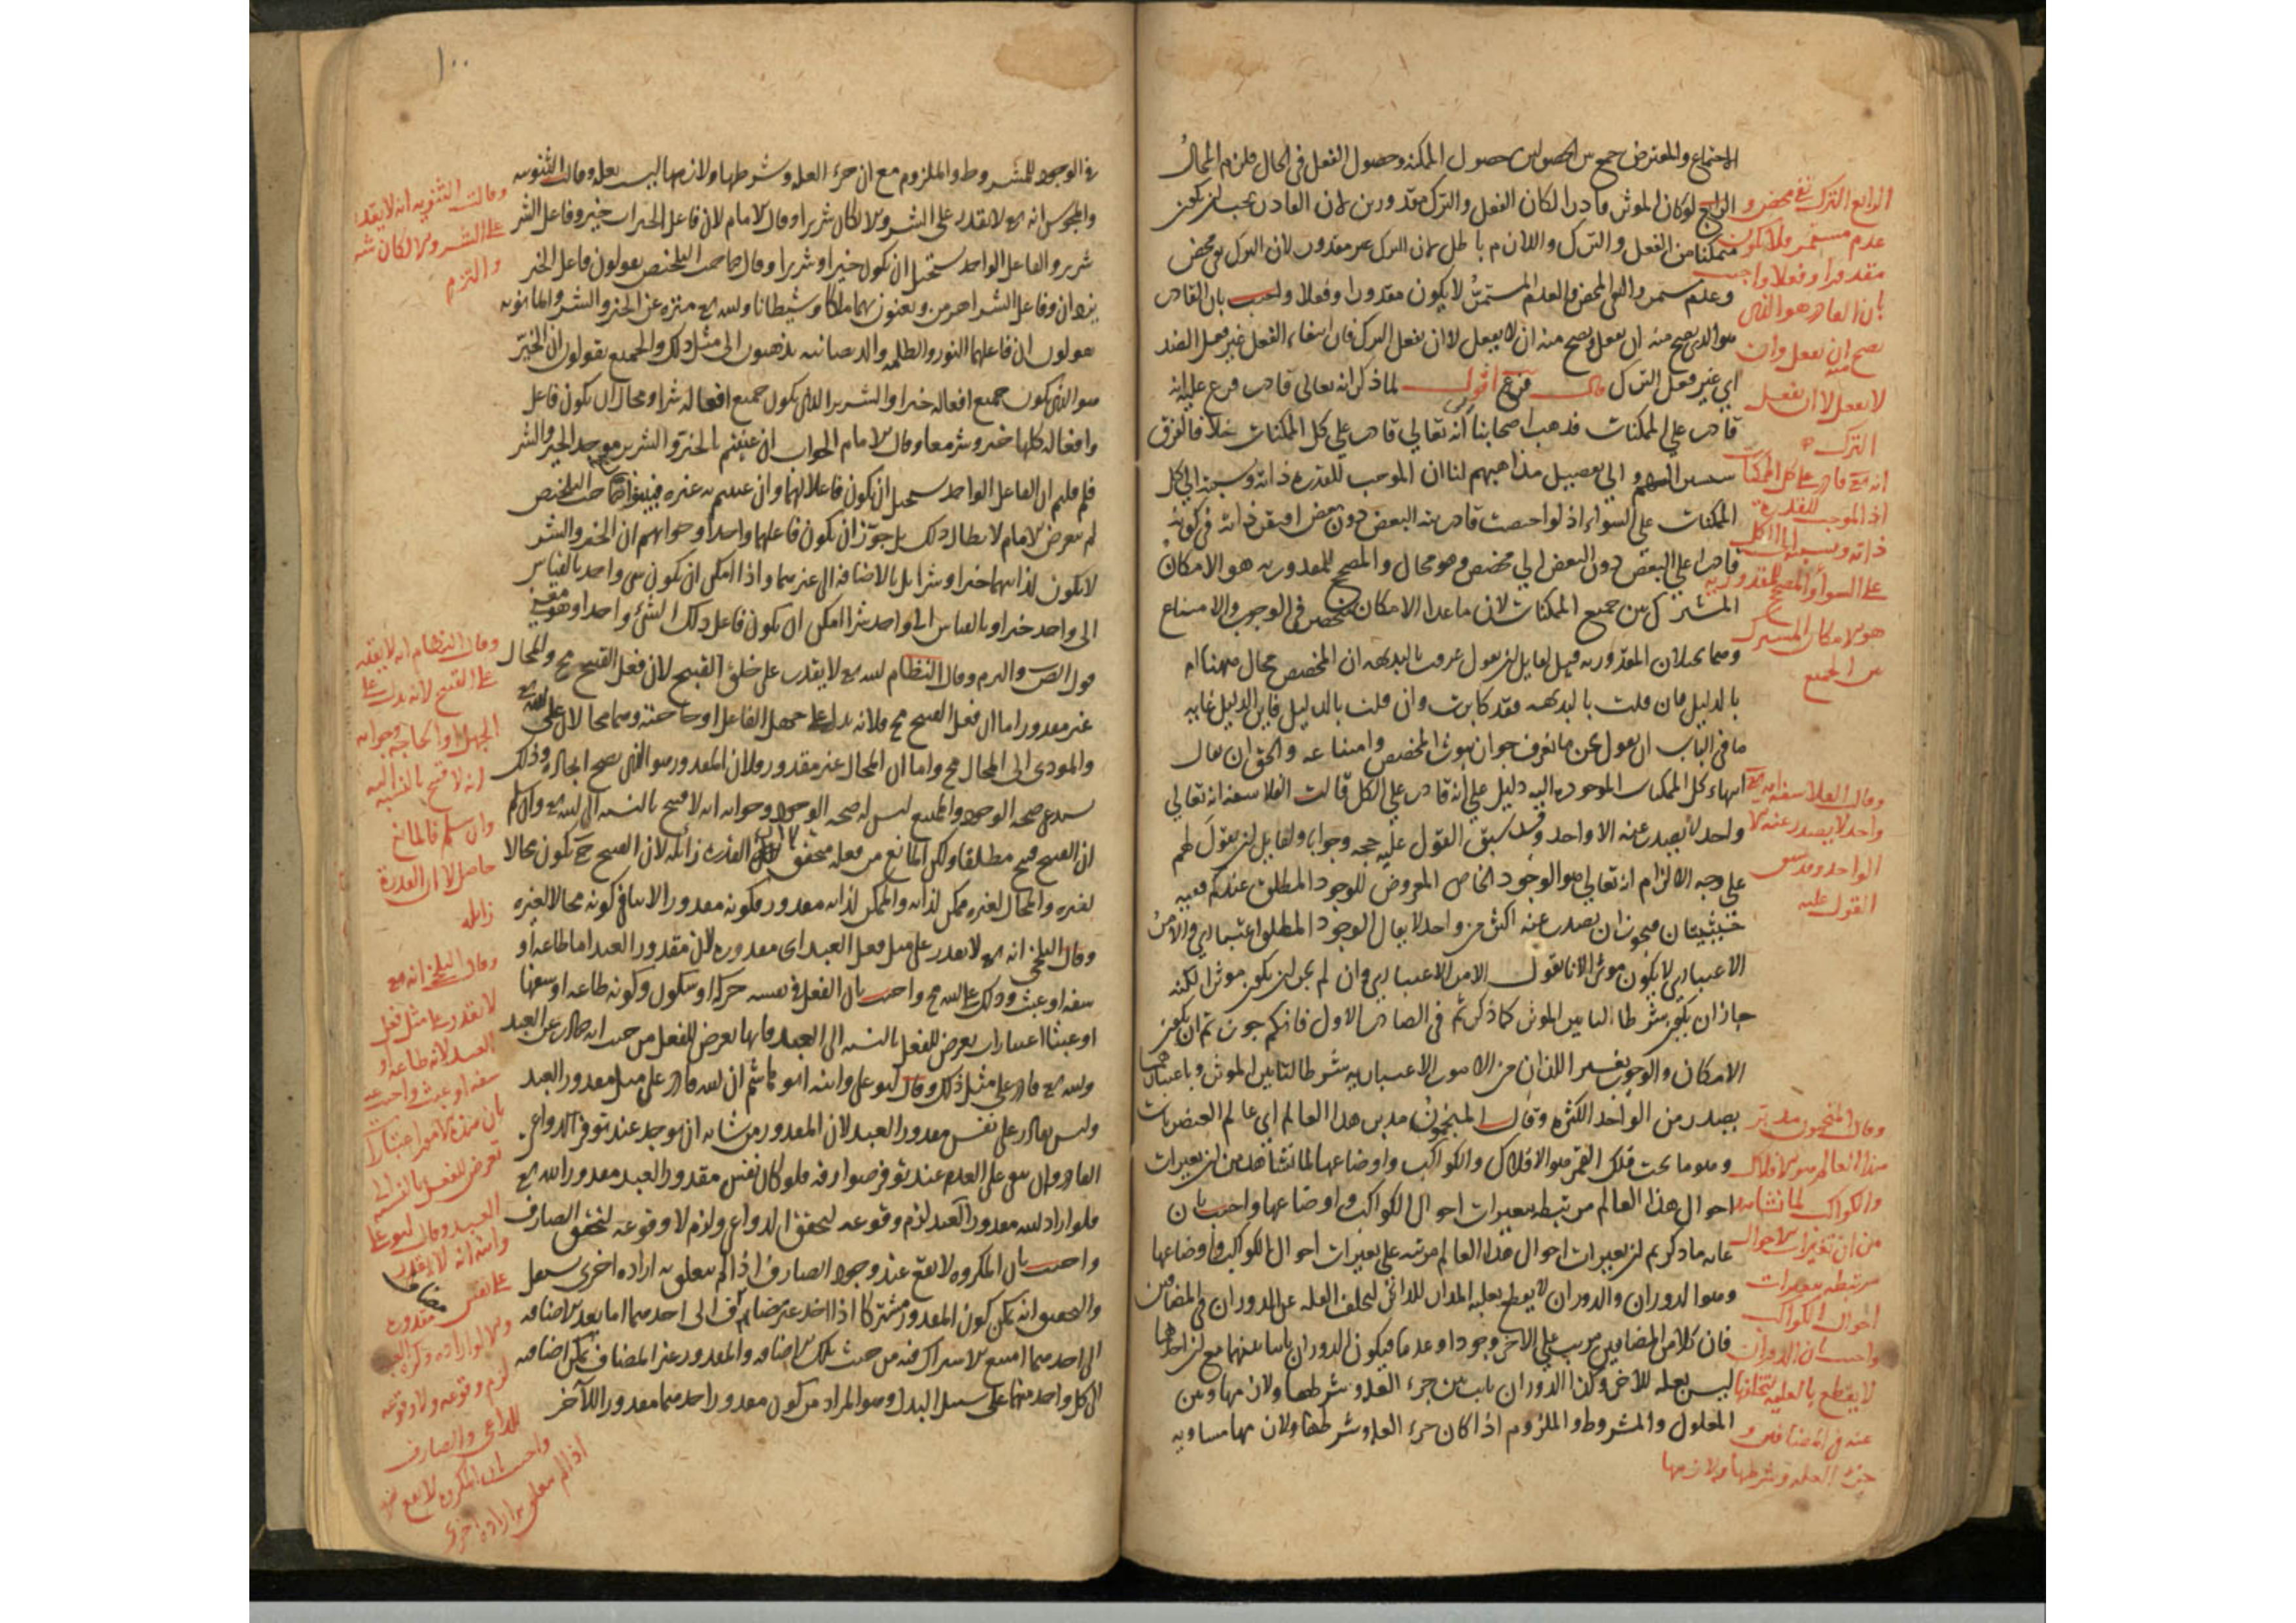 الاجتماع والمعترض جمع بين الحصولين حصول المكنة وحصول الفعل في الحال فلزم المحال
الرابع لو كان المؤثر قادرا لكان الفعل والترك مقدورين لان القادر يجب ان يكون
متمكنا من الفعل والترك واللازم باطل لان الترك غير مقدور لان الترك نفي محض
وعدم مستمر والنفي المحض والعدم المستمر لا يكون مقدورا وفعلا واجيب بان القادر
هو الذي يصح منه ان يفعل ويصح منه ان لا يفعل لا ان يفعل الترك فان انتفاء الفعل غير فعل الضد
اي غير فعل الترك قال فرع اقول لما ذكر انه تعالى قادر فرع عليه انه
قادر على الممكنات فذهب اصحابنا انه تعالى قادر على كل الممكنات
الى تفصيل مذاهبهم لنا ان الموجب للقدرة ذاته ونسبته الى كل
الممكنات على السواء اذ لو اختصت قادريته بالبعض دون بعض افتقر ذاته في كونه
قادرا على البعض دون البعض الى مخصص وهو محال والمصحح للمقدورية هو الامكان
المشترك بين جميع الممكنات لان ما عدا الامكان منحصر في الوجوب والامتناع
وهما يحيلان المقدورية قيل لقايل ان يقول عرفت بالبديهة ان المخصص محال ههنا ام
بالدليل فان قلت بالبديهة فقد كابرت وان قلت بالدليل فاين الدليل غاية
ما في الباب ان يقول نحن ما نعرف جواز ثبوت المخصص وامتناعه والحق ان يقال
انتهاء كل الممكنات الموجودة اليه دليل على انه قادر على الكل قالت الفلاسفة انه تعالى
واحد لا يصدر عنه الا واحد وقد سبق القول عليه حجة وجوابا ولقايل ان يقول لهم
على وجه الالزام انه تعالى هو الوجود الخاص المعروض للوجود المطلق عندكم ففيه
حيثيتان فيجوز ان يصدر عنه اكثر من واحد لا يقال الوجود المطلق اعتباري والامر
الاعتباري لا يكون مؤثرا لانا نقول الامر الاعتباري وان لم يجز ان يكون مؤثرا لكنه
جاز ان يكون شرطا لتاثير المؤثر كما ذكرتم في الصادر الاول فانكم جوزتم ان يكون
الامكان والوجوب بغيره اللذان من الامور الاعتبارية شرطا لتاثير المؤثر وباعتبارهما
يصدر من الواحد الكثرة وقال المنجمون مدبر هذا العالم اي عالم العنصريات
وهو ما تحت فلك القمر هو الافلاك والكواكب واوضاعها لما نشاهد من ان تغيرات
احوال هذا العالم مرتبطة بتغيرات احوال الكواكب واوضاعها واجيب بان
غاية ما ذكرتم ان تغيرات احوال هذا العالم مرتبة على تغيرات احوال الكواكب واوضاعها
وهو الدوران والدوران لا يقطع بعلية المدار للدائر لتخلف العلة عن الدوران في المضافين
فان كلا من المضافين مرتب على الاخر وجودا وعدما فيكون الدوران ثابتا عنهما مع ان احدهما
ليس بعلة للاخر وكذا الدوران ثابت بين جزء العلة وشرطها ولازمها وبين
المعلول والمشروط والملزوم اذا كان جزء العلة وشرطها ولازمها مساويه
الرابع الترك نفي محض و
عدم مستمر فلا يكون
مقدورا وفعلا واجيب
بان القادر هو الذي
يصح منه ان يفعل وان
لا يفعل لا ان يفعل
الترك
انه تع قادر على كل الممكنات
اذ الموجب للقدرة
ذاته ونسبته الى الكل
على السواء والمصحح للمقدورية
هو الامكان المشترك
بين الجميع
وقال الفلاسفة انه تع
واحد لا يصدر عنه الا
الواحد وقد سبق
القول عليه
وقال المنجمون مدبر
هذا العالم هو الافلاك
والكواكب لما نشاهد
من ان تغيرات الاحوال
مرتبطة بتغيرات
احوال الكواكب
واجيب بان الدوران
لا يقطع بالعلية لتخلفها
عنه في المضافين و
جزء العلة وشرطها ولازمها
١٠٠
في الوجود للمشروط والملزوم مع ان جزء العلة وشرطها ولازمها ليست بعلة وقالت الثنوية
والمجوس انه تع لا يقدر على الشر والا لكان شريرا وقال الامام لان فاعل الخيرات خير وفاعل الشر
شرير والفاعل الواحد يستحيل ان يكون خيرا وشريرا وقال صاحب التلخيص يقولون فاعل الخير
يزدان وفاعل الشر اهرمن ويعنون بهما ملكا وشيطانا والله تع منزه عن الخير والشر والمانوية
يقولون ان فاعلهما النور والظلمة والديصانية يذهبون الى مثل ذلك والجميع يقولون ان الخير
هو الذي يكون جميع افعاله خيرا والشرير الذي يكون جميع افعاله شرا ومحال ان يكون فاعل
وافعاله كلها خير وشر معا وقال الامام الجواب ان عنيتم بالخير والشرير موجد الخير والشر
فلم قلتم ان الفاعل الواحد يستحيل ان يكون فاعلا لهما وان عنيتم به غيره فبينوا صاحب التلخيص
لم يتعرض الامام لابطال ذلك بل جوز ان يكون فاعلهما واحدا وجوابهم ان الخير والشر
لا يكون لذاتيهما خيرا وشرا بل بالاضافة الى غيرهما واذا امكن ان يكون شي واحد بالقياس
الى واحد خيرا وبالقياس الى واحد شرا امكن ان يكون فاعل ذلك الشئ واحدا
وقال النظام الله تع لا يقدر على خلق القبيح لان فعل القبيح مح والمحال
غير مقدور اما ان فعل القبيح مح فلانه يدل على جهل الفاعل او حاجته وهما محالان على الله تع
والمودي الى المحال مح واما ان المحال غير مقدور فلان المقدور هو الذي يصح ايجاده وذلك
يستدعي صحة الوجود والممتنع ليس له صحة الوجود وجوابه انه لا قبيح بالنسبة الى الله تع وان سلم
ان القبيح قبيح مطلقا ولكن المانع من فعله متحقق لا ان القدرة زائلة لان القبيح ح يكون محالا
لغيره والمحال لغيره ممكن لذاته والممكن لذاته مقدور فكونه مقدورا لا ينافي كونه محالا لغيره
وقال البلخي انه تع لا يقدر على مثل فعل العبد اي مقدوره لان مقدور العبد اما طاعة او
سفه او عبث وذلك على الله مح واجيب بان الفعل في نفسه حركة او سكون وكونه طاعة او سفها
او عبثا اعتبارات يعرض للفعل بالنسبة الى العبد فانها يعرض للفعل من حيث انه صادر عن العبد
والله تع قادر على مثل ذلك وقال ابو علي وابنه ابو هاشم ان الله قادر على مثل مقدور العبد
وليس بقادر على نفس مقدور العبد لان المقدور من شانه ان يوجد عند توفر الدواعي
القادر وان يبقى على العدم عند توفر صوارفه فلو كان نفس مقدور العبد مقدورا لله تع
فلو اراد الله مقدور العبد لزم وقوعه لتحقق الدواعي ولزم لا وقوعه لتحقق الصارف
واجيب بان المكروه لا يقع عند وجود الصارف اذا لم يتعلق به ارادة اخرى
والتحقيق انه يمكن كون المقدور مشتركا اذا اخذ غير مضاف الى احدهما اما بعد الاضافة
الى احدهما امتنع الاشتراك فيه من حيث تلك الاضافة والمقدور غير المضاف يمكن اضافته
الى كل واحد منهما على سبيل البدل وهو المراد من كون مقدور احدهما مقدورا للآخر
وقالت الثنوية انه لا يقدر
على الشر والا لكان
والتزم
وقال النظام انه لا يقدر
على القبيح لانه يدل على
الجهل او الحاجة وجوابه
انه لا قبيح بالنسبة اليه
وان سلم فالمانع
حاصل لا ان القدرة
زائلة
وقال البلخي انه تع
لا يقدر على مثل فعل
العبد لانه طاعة او
سفه او عبث واجيب
بان هذه الامور اعتبارات
تعرض للفعل بالنسبة الى
العبد وقال ابو علي
وابنه انه لا يقدر
على نفس مقدوره
والا لو اراده وكرهه العبد
لزم وقوعه ولا وقوعه
للداعي والصارف
واجيب بان المكروه لا يقع
اذا لم يتعلق به ارادة اخرى